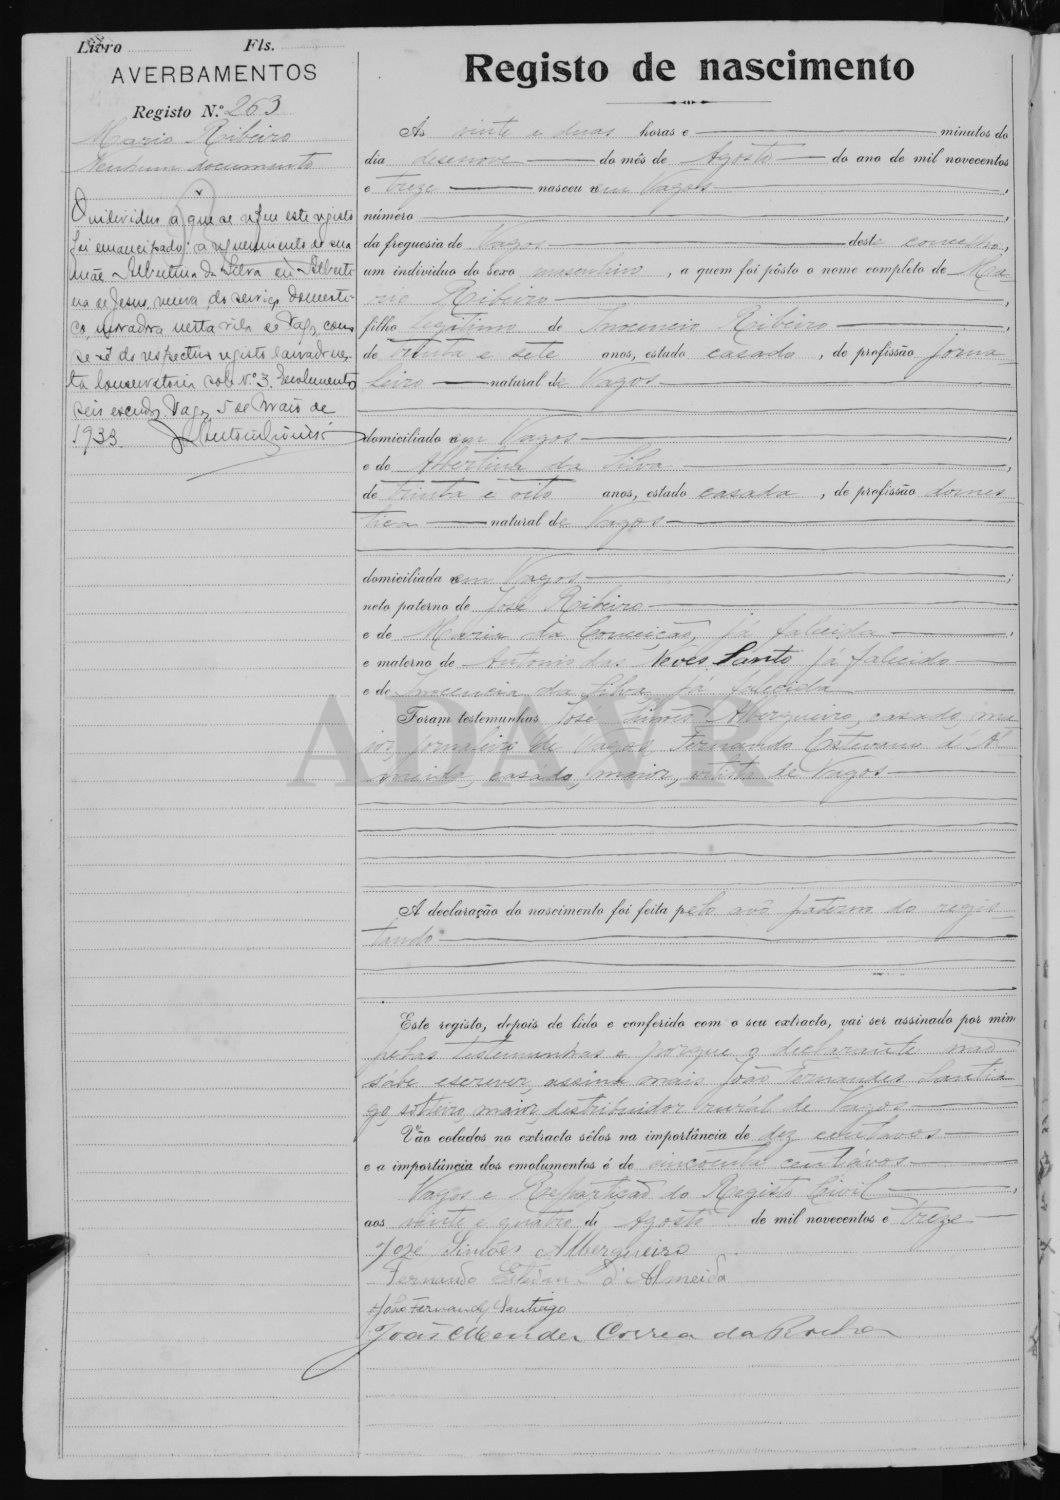 Livro Fls.
AVERBAMENTOS
Registo N.º 263
Mario Ribeiro
Nenhum documento
O individuo a que se refere este registo
foi emancipado a requerimento de sua
mãe Albertina da Silva ou Alberti
na de Jesus, viuva, do serviço domesti
co, moradora nesta vila de Vagos, como
se vê do respectivo registo lavrado nes
ta Conservatoria sob N.º 3. Emolumentos
seis escudos. Vagos, 5 de Maio de
1933.
Registo de nascimento
Ás vinte e duas horas e minutos do
dia desenove do mês de Agosto do ano de mil novecentos
e treze nasceu em Vagos,
número
da freguesia de Vagos deste concelho,
um individuo do sexo masculino, a quem foi pôsto o nome completo de Ma-
rio Ribeiro,
filho legitimo de Innocencio Ribeiro,
de trinta e sete anos, estado casado, de profissão jorna-
leiro natural de Vagos
domiciliado em Vagos
e de Albertina da Silva,
de trinta e oito anos, estado casada, de profissão domes-
tica natural de Vagos
domiciliada em Vagos;
neto paterno de José Ribeiro
e de Maria da Conceição, já falecida,
e materno de Antonio das Neves Santo já falecido
e de Innocencia da Silva já falecida
Foram testemunhas José Simões Albergueiro, casado, ma-
ior, jornaleiro de Vagos, Fernando Estevam d'Al-
meida, casado, maior, de Vagos
A declaração do nascimento foi feita pelo avô paterno do regis-
tando
Este registo, depois de lido e conferido com o seu extracto, vai ser assinado por mim
pelas testemunhas e porque o declarante não
sabe escrever, assina mais João Fernandes Santia-
go, solteiro, maior, distribuidor rural de Vagos
Vão colados no extracto sêlos na importância de dez centavos
e a importância dos emolumentos é de cincoenta centávos
Vagos e Repartição do Registo Civil,
aos vinte e quatro de Agosto de mil novecentos e treze
José Simões Albergueiro
Fernando Estevam d'Almeida
João Fernandes Santiago
João Mendes Correa da Rocha
ADAVR